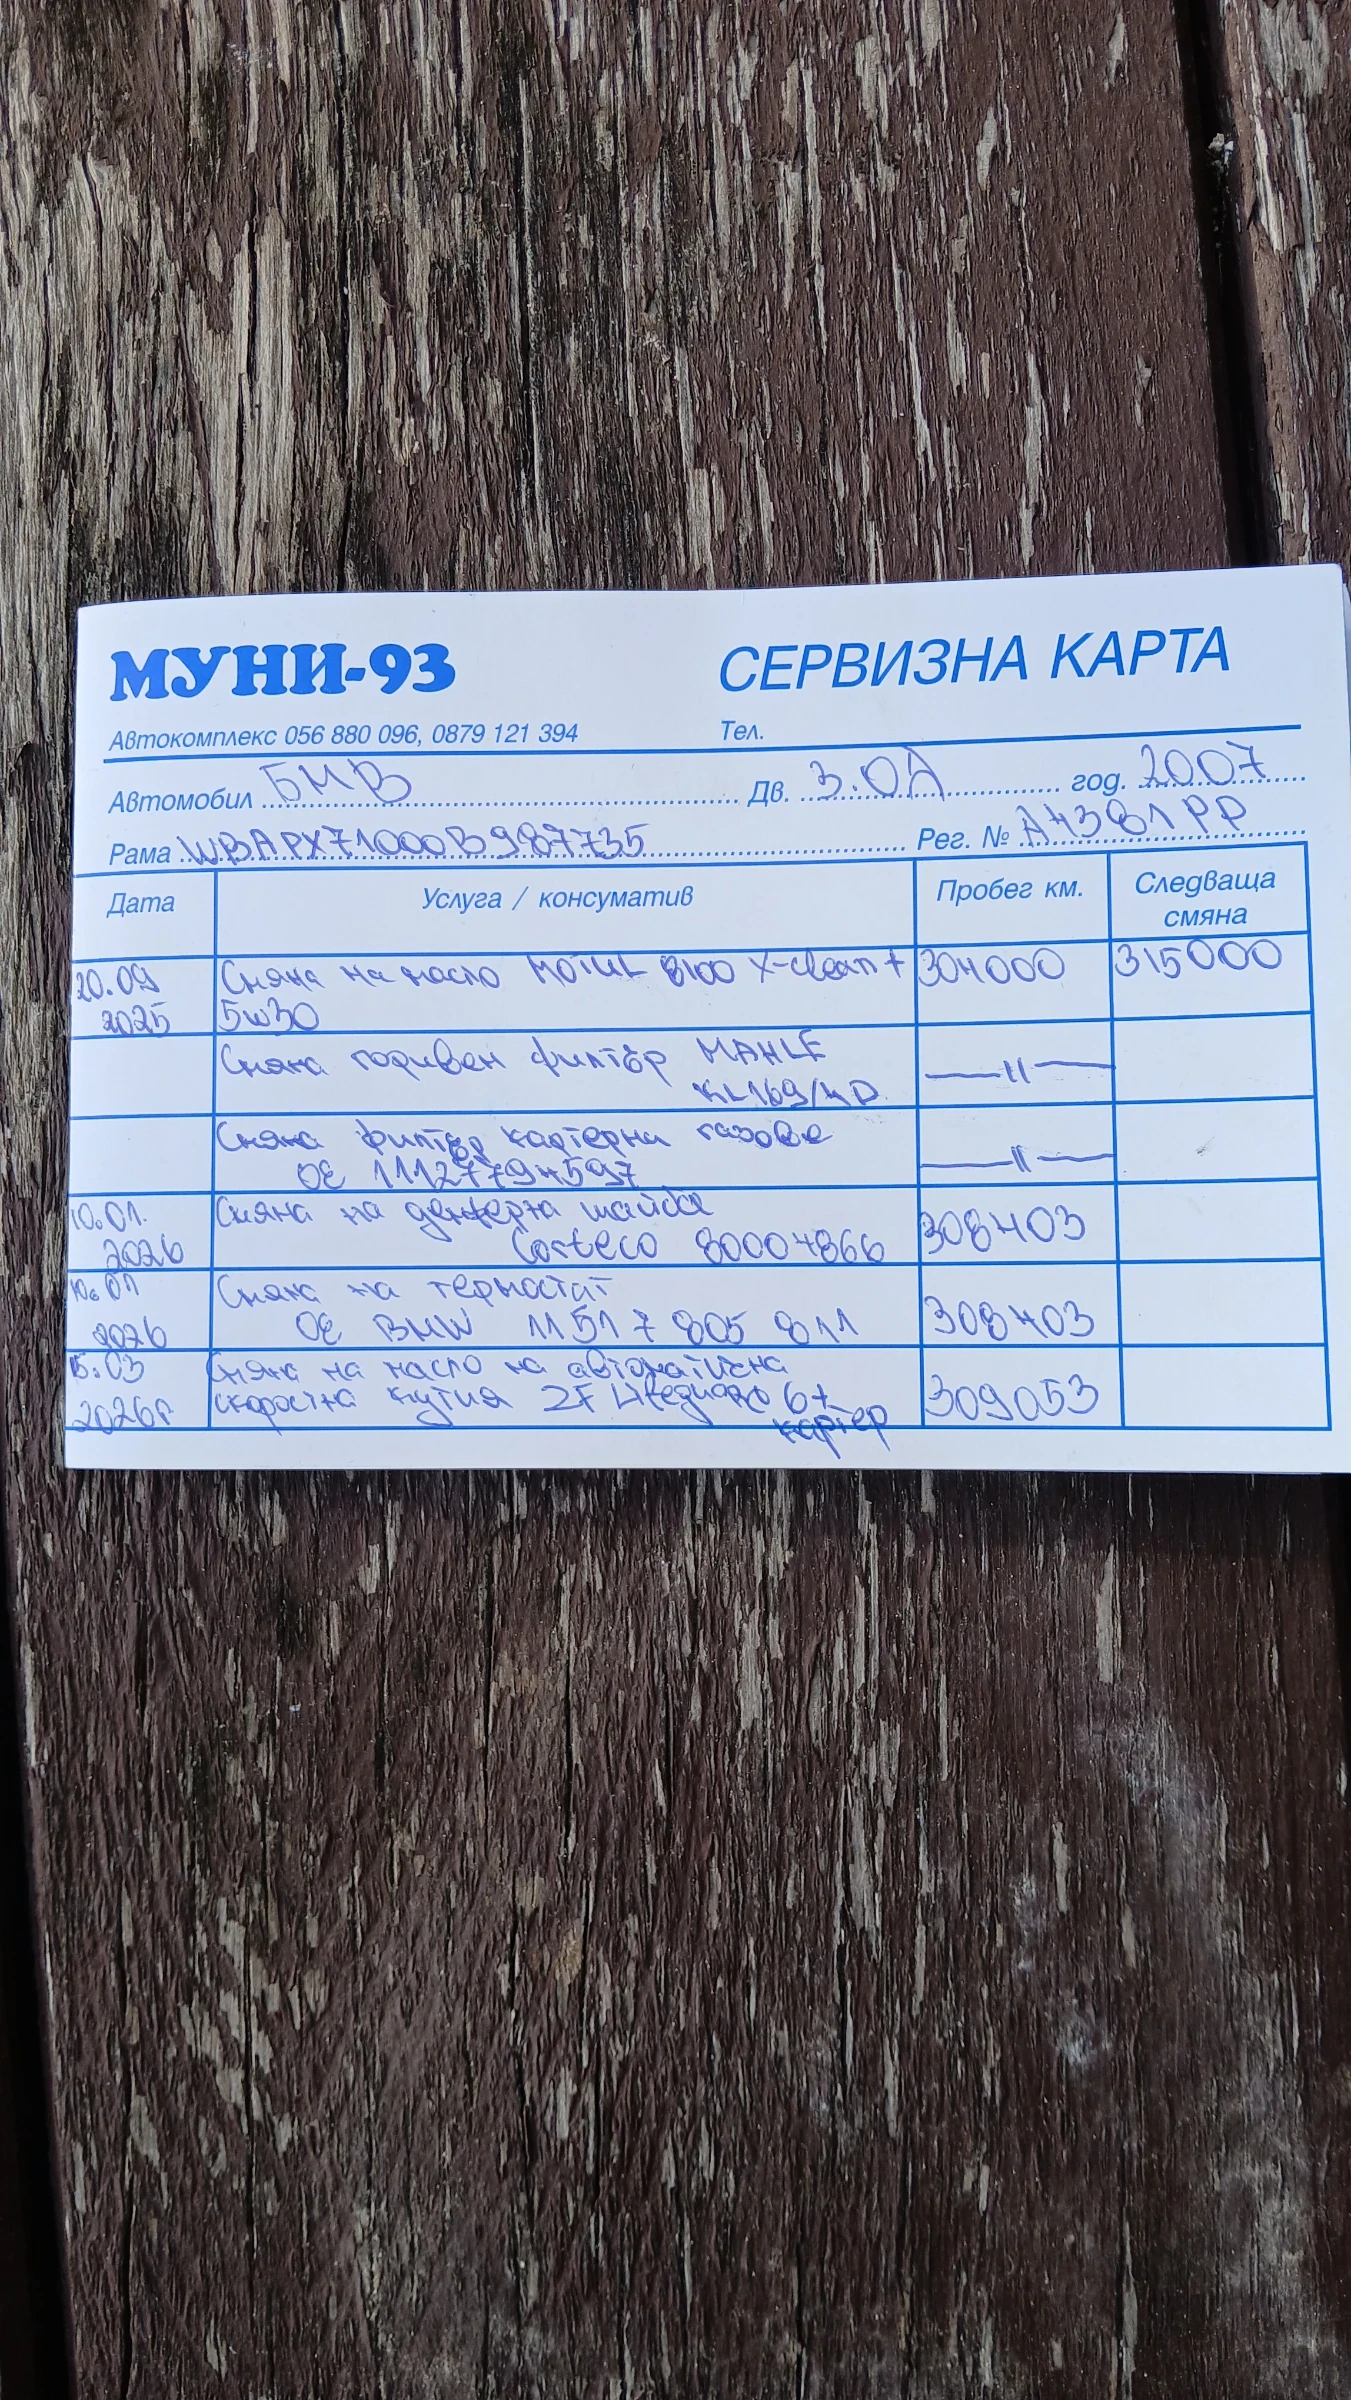 МУНИ-93
СЕРВИЗНА КАРТА
Автокомплекс 056 880 096, 0879 121 394
Тел.
Автомобил БМВ Дв. 3.0Д год. 2007
Рама WBAPX71000B987735 Рег. № А4381РР
Дата
Услуга / консуматив
Пробег км.
Следваща
смяна
20.09
2025
Смяна на масло MOTUL 8100 X-clean+
5w30
304000
315000
Смяна горивен филтър MAHLE
KL169/4D
—"—
Смяна филтър картерни газове
OE 11127794597
—"—
10.01.
2026
Смяна на демферна шайба
Corteco 80004866
308403
10.01
2026
Смяна на термостат
OE BMW 11517 805 811
308403
15.03
2026г
Смяна на масло на автоматична
скоростна кутия ZF Lifeguard 6+
картер
309053